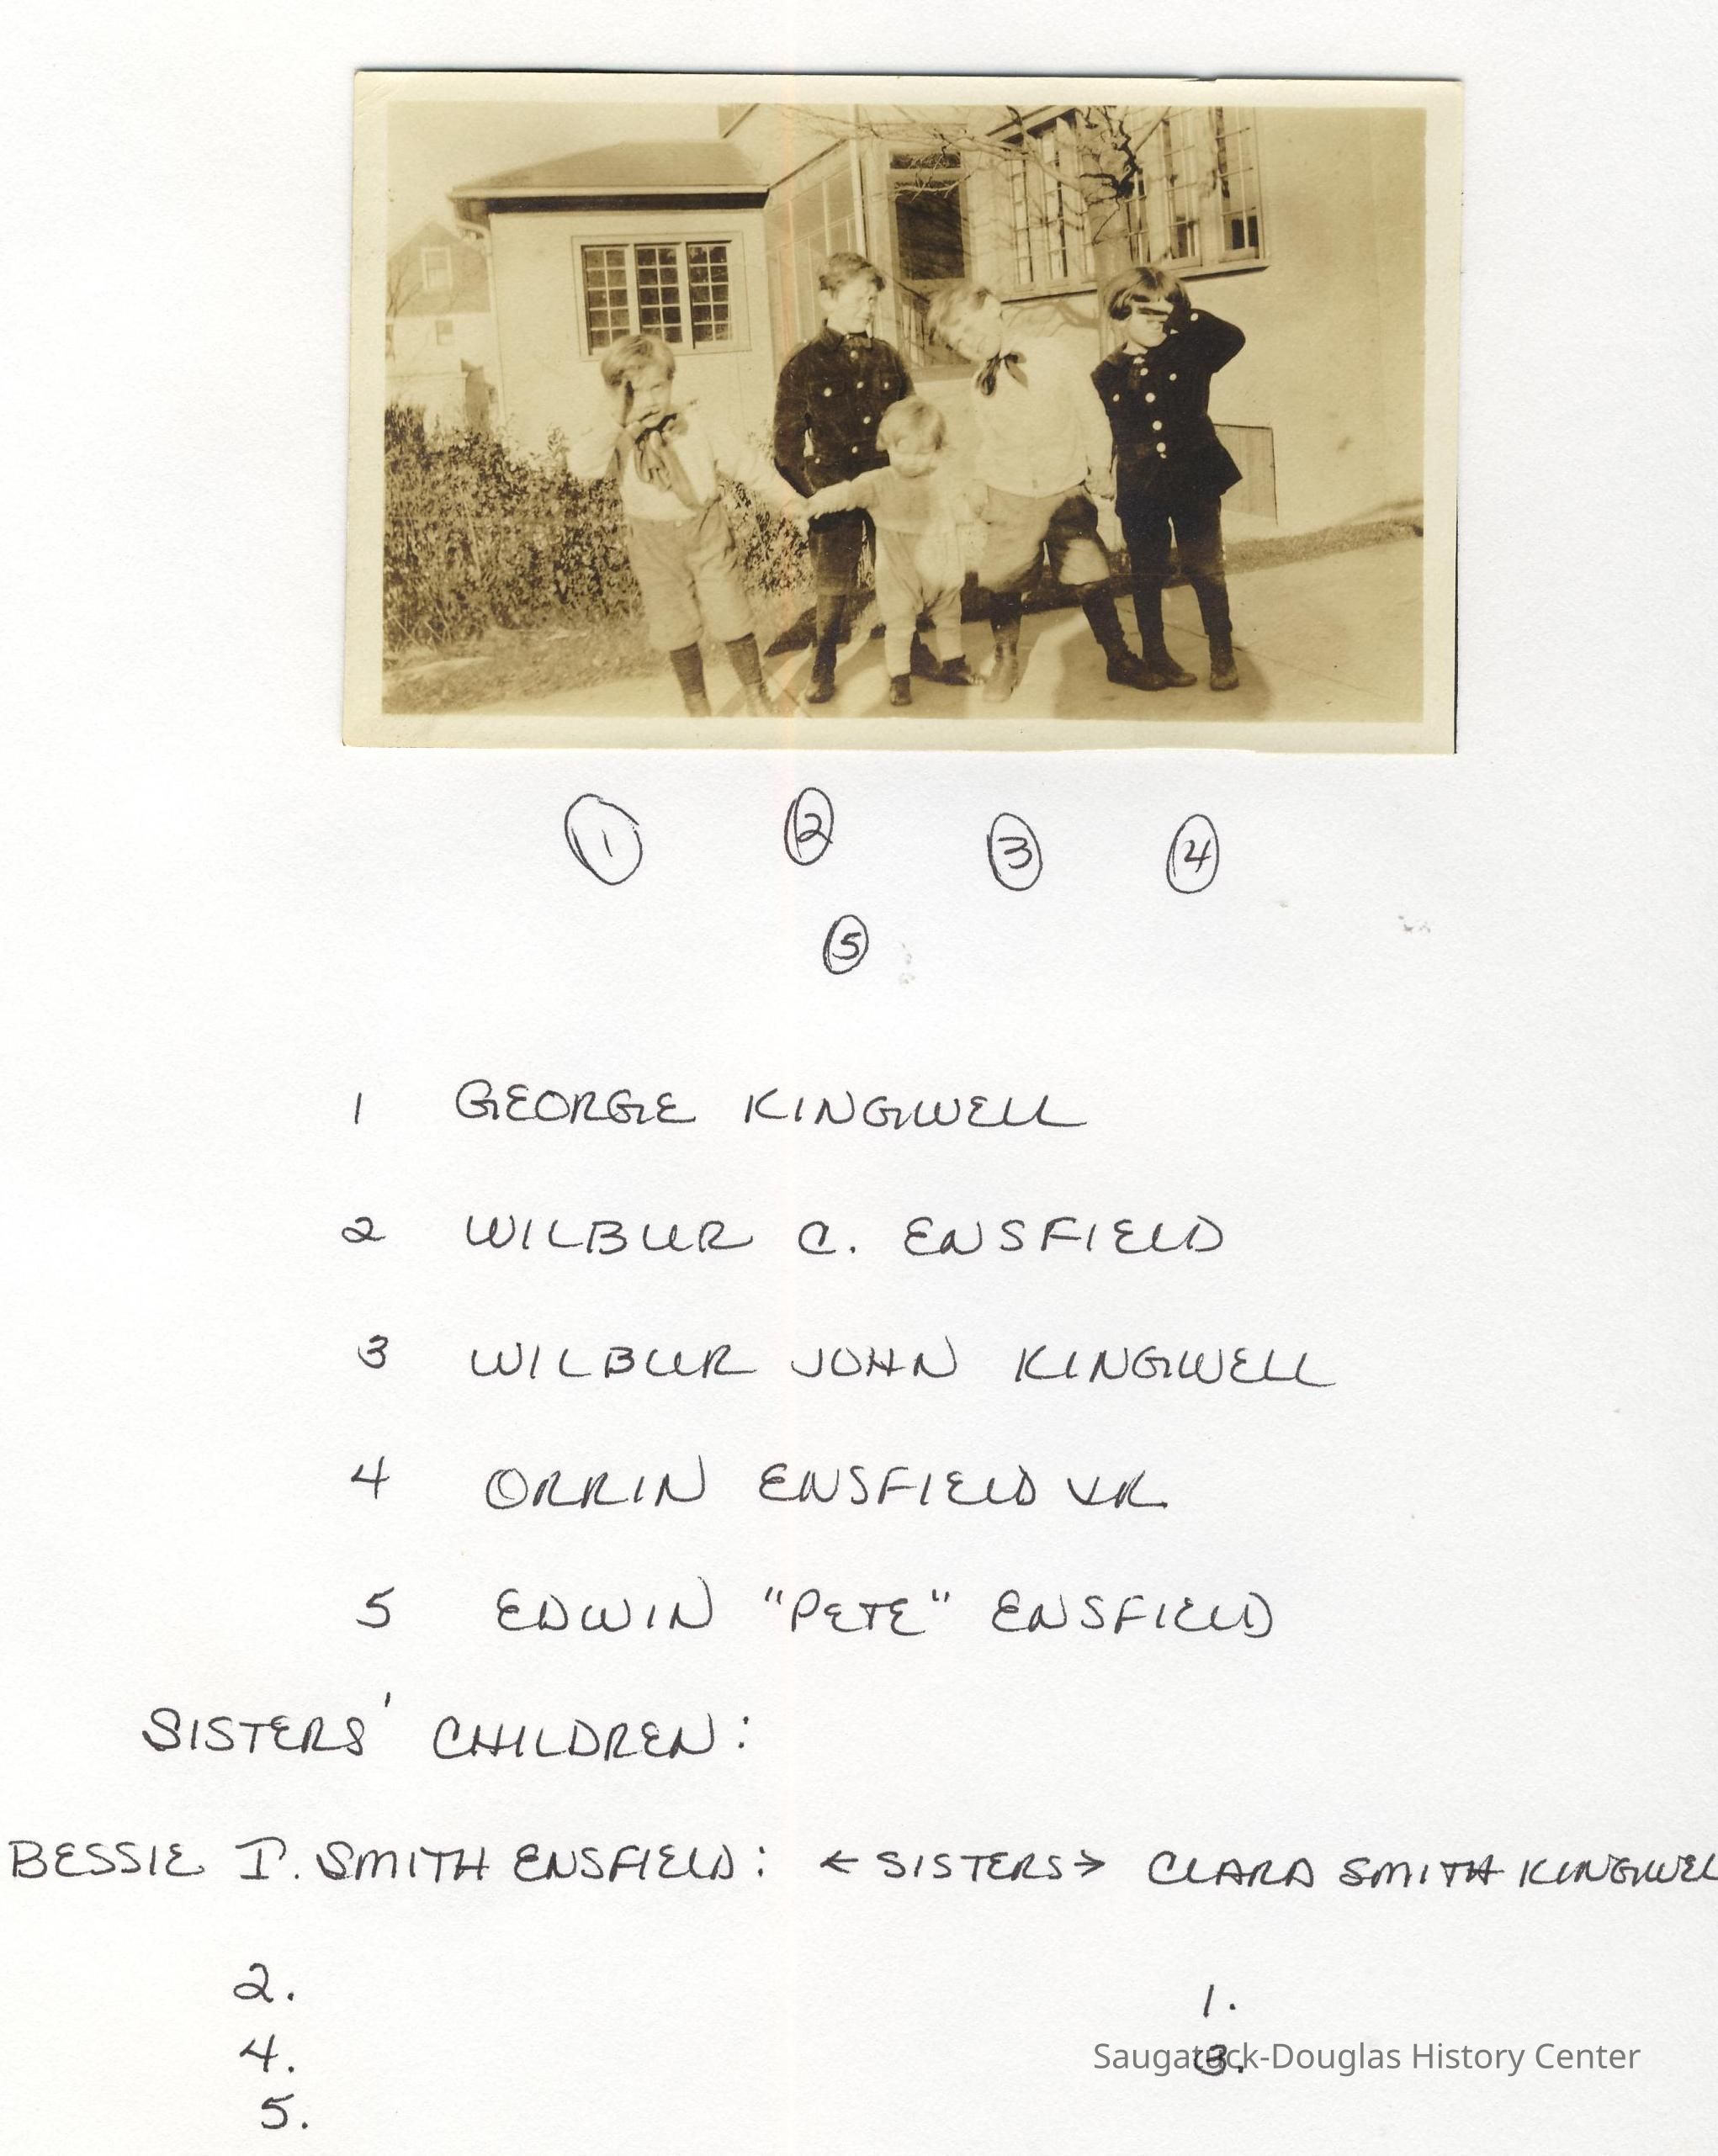 1 2 3 4
5
1 GEORGE KINGWELL
2 WILBUR C. ENSFIELD
3 WILBUR JOHN KINGWELL
4 ORRIN ENSFIELD JR.
5 EDWIN "PETE" ENSFIELD
SISTERS' CHILDREN:
BESSIE I. SMITH ENSFIELD: ← SISTERS → CLARA SMITH KINGWEL
2. 1.
4. 3.
Saugatuck-Douglas History Center
5.